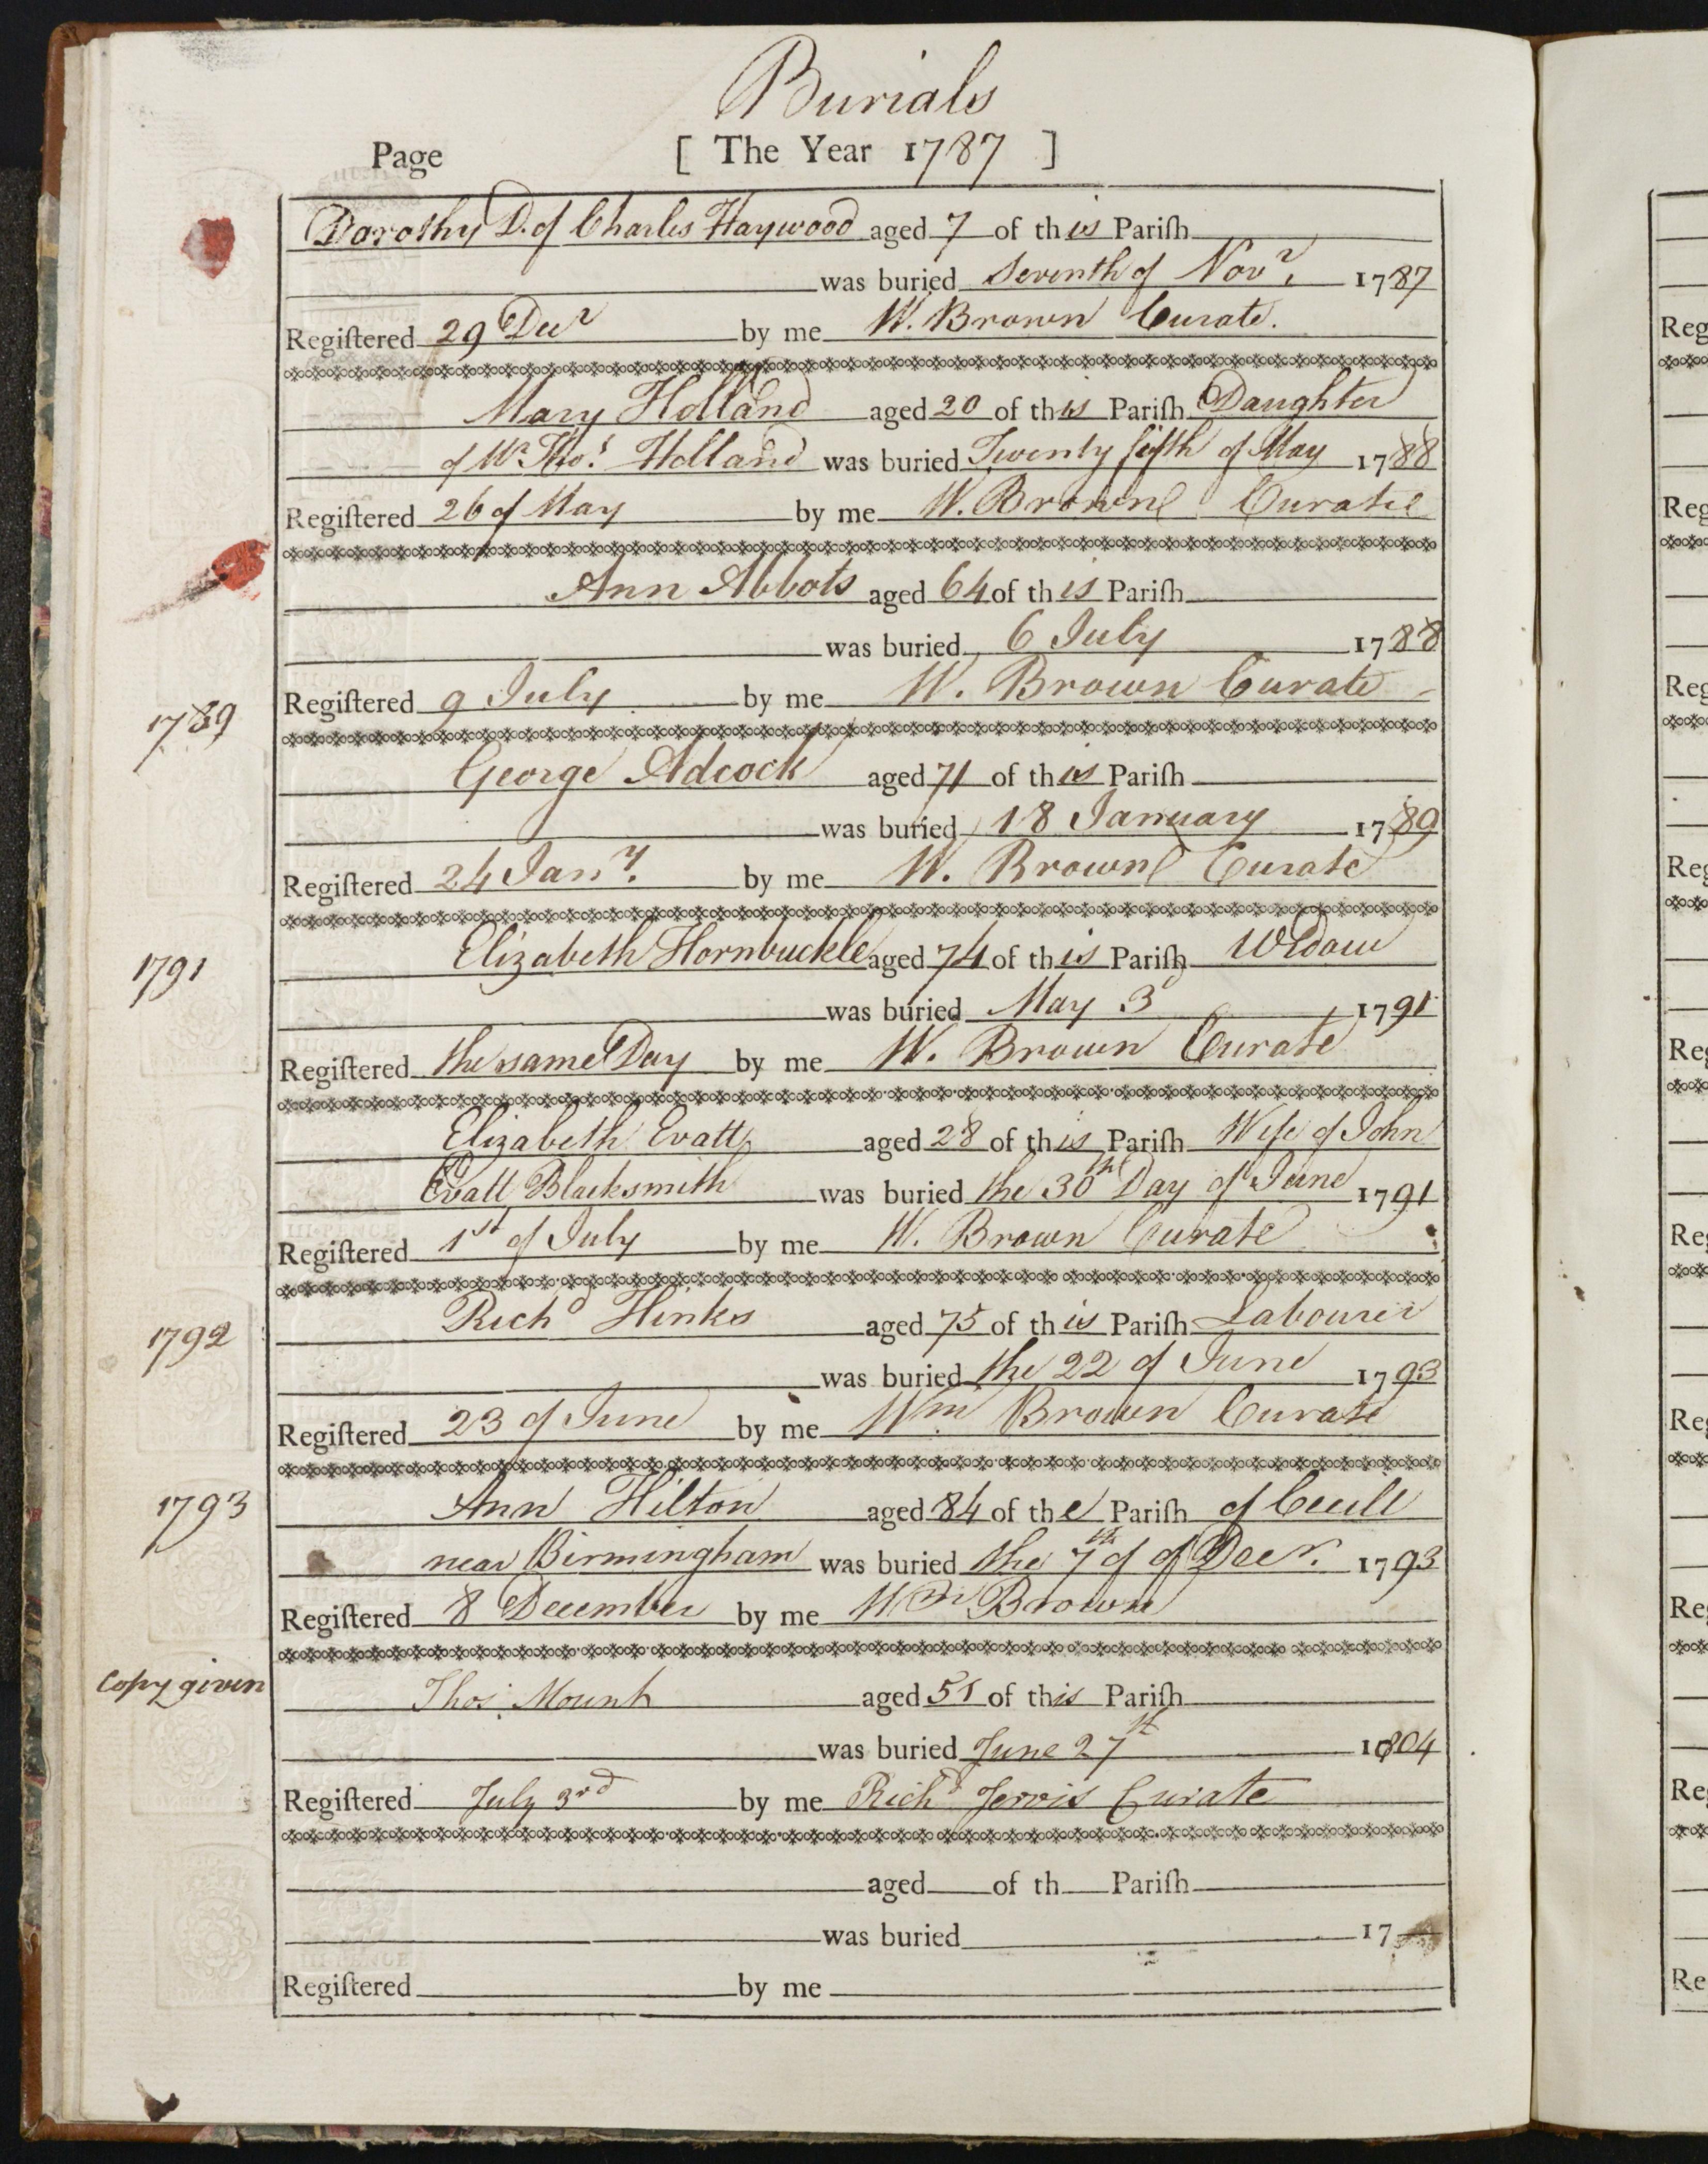 Burials
Page [ The Year 1787 ]
Dorothy D. of Charles Haywood aged 7 of this Pariſh
was buried Seventh of Novr. 1787
Regiſtered 29 Decr by me W. Brown Curate.
Mary Holland aged 20 of this Pariſh Daughter
of Mr. Thos. Holland was buried Twenty fifth of May 1788
Regiſtered 26 of May by me W. Brown Curate
Ann Abbots aged 64 of this Pariſh
was buried 6 July 1788
Regiſtered 9 July by me W. Brown Curate
1789
George Adcock aged 71 of this Pariſh
was buried 18 January 1789
Regiſtered 24 Jany. by me W. Brown Curate
1791
Elizabeth Hornbuckle aged 74 of this Pariſh Widow
was buried May 3d 1791
Regiſtered the same Day by me W. Brown Curate
Elizabeth Evatt aged 28 of this Pariſh Wife of John
Evatt Blacksmith was buried the 30th Day of June 1791
Regiſtered 1st of July by me W. Brown Curate
1792
Richd Hinks aged 75 of this Pariſh Labourer
was buried the 22 of June 1793
Regiſtered 23 of June by me Wm. Brown Curate
1793
Ann Hilton aged 84 of the Pariſh of
near Birmingham was buried the 7th of of Decr. 1793
Regiſtered 8 December by me Wm Brown
Copy given
Thos. aged 51 of this Pariſh
was buried June 27st 1804
Regiſtered July 3rd by me Richd Jervis Curate
aged of th Pariſh
was buried 17
Regiſtered by me
Reg
Reg
Reg
Reg
Reg
Reg
Reg
Reg
Reg
Re